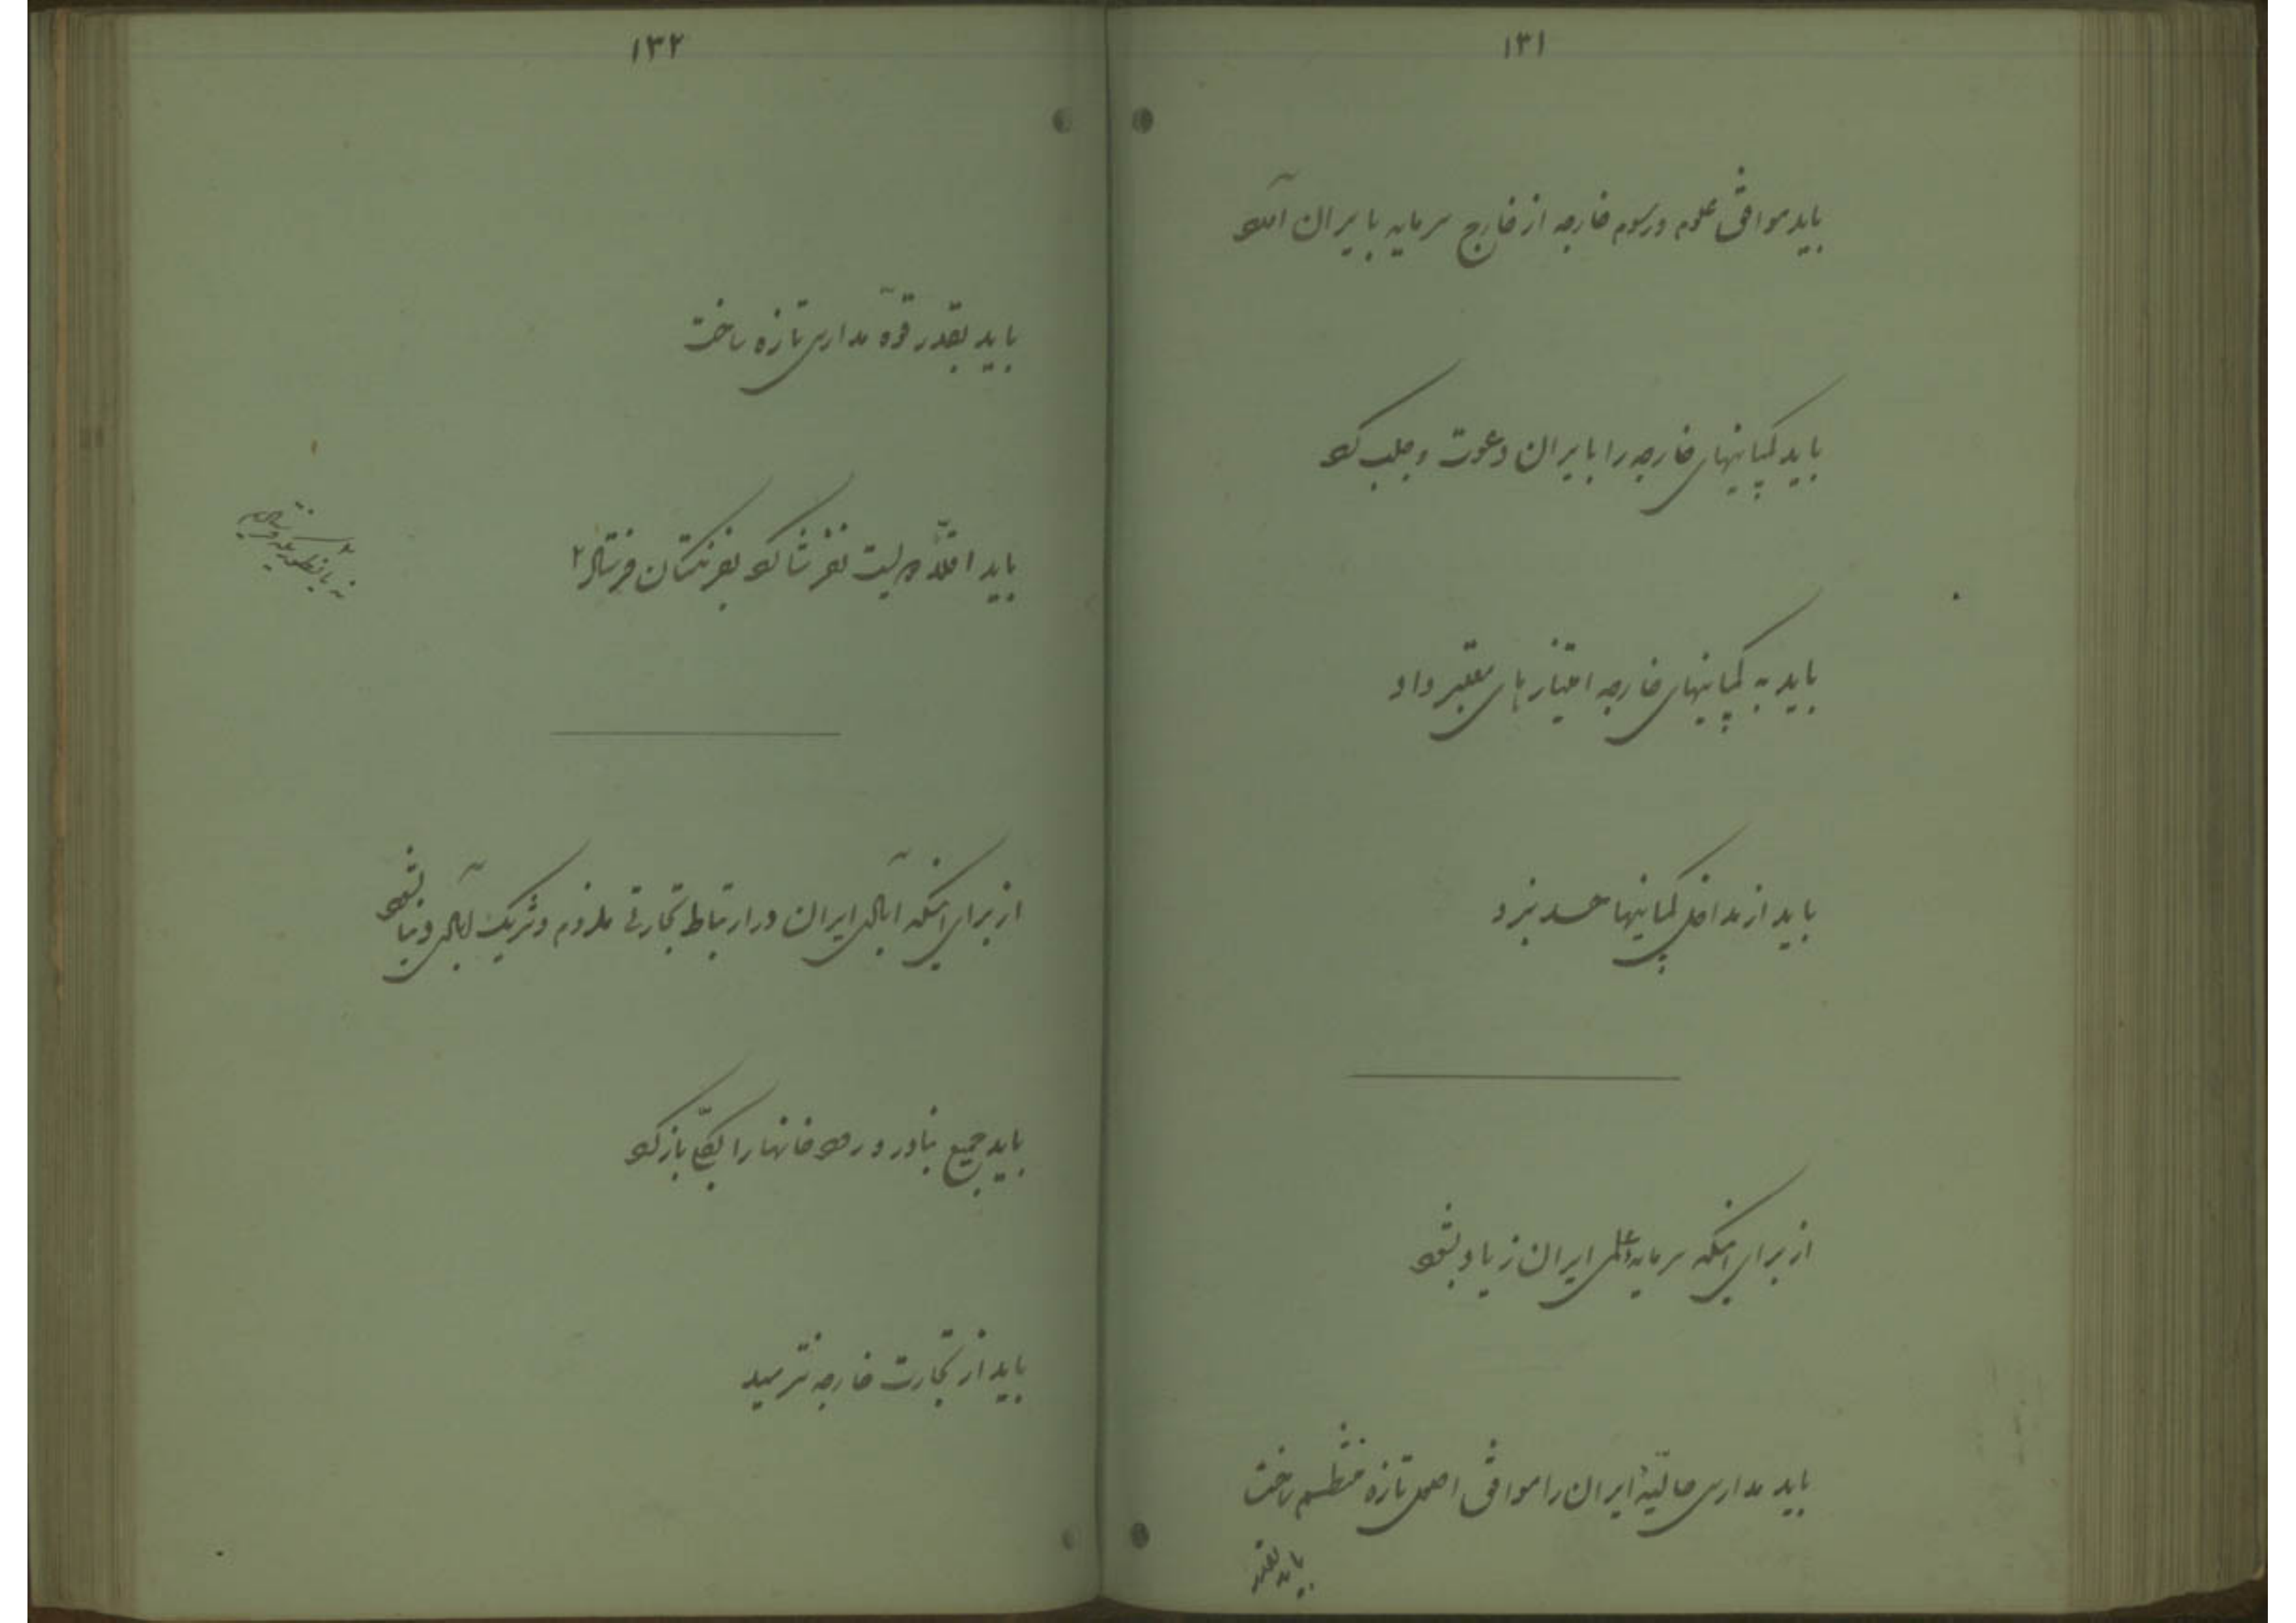 ۱۳۱
باید موافق علوم و رسوم خارجه از خارج سرمایه بایران آورد
باید کمپانیهای خارجه را بایران دعوت و جلب کرد
باید به کمپانیهای خارجه امتیازهای معتبر داد
باید از مداخل کمپانیها حسد نبرد
از برای اینکه سرمایه علمی ایران زیاد بشود
باید مدارس حالیّهٔ ایران را موافق اصول تازه منظم ساخت
باید بقدر
۱۳۲
باید بقدر قوّه مدارس تازه ساخت
باید اقلاً دویست نفر شاگرد بفرنگستان فرستاد ۲
نه باینطوریکه
از برای اینکه اهالی ایران در ارتباط تجارتی ملزوم و شریک اهالی دنیا بشود
باید جمیع بنادر و رودخانها را بکلّی باز کرد
باید از تجارت خارجه نترسید